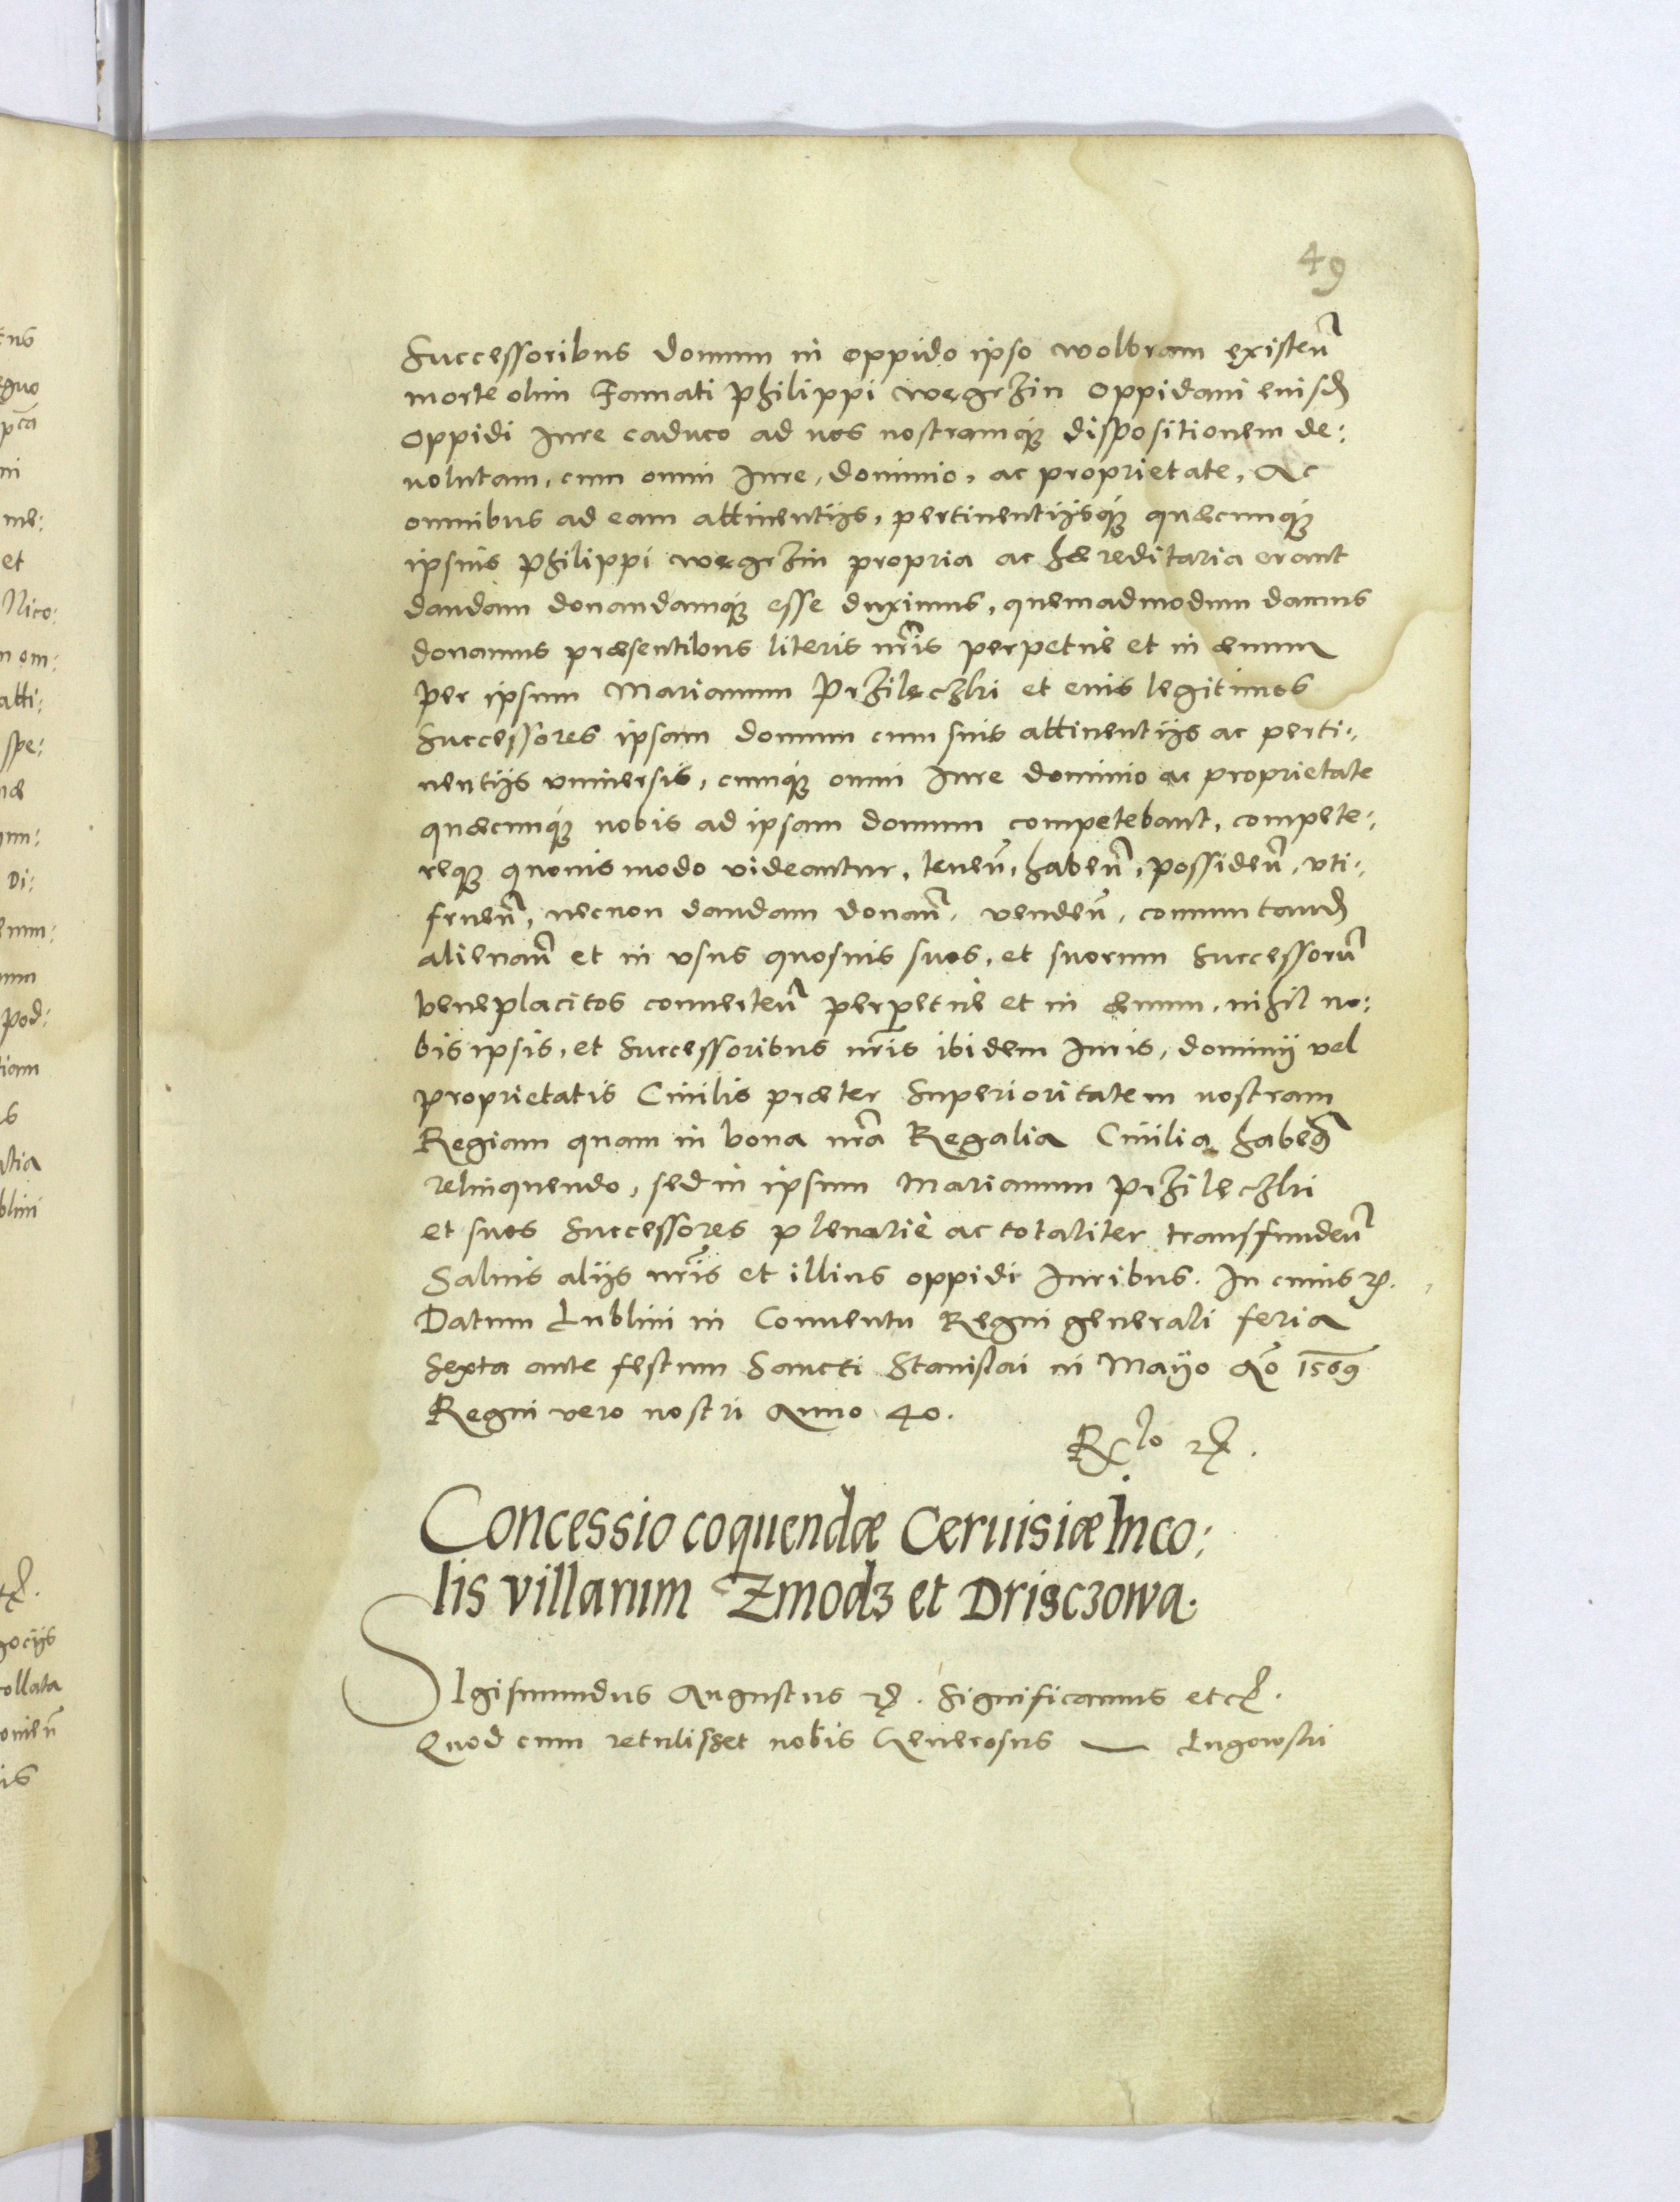 49
Successoribus domum in oppido ipso wolbram existeñ
morte olim Famati Philippi wegrzin oppidani eiusd
oppidi Iure caduco ad nos nostramq̃ dispositionem de:
uolutam, cum omni Iure, dominio, ac proprietate, Ac
omnibus ad eam attinentijs, pertinentijsq́ʒ quæcunq́ʒ
ipsius Philippi wegrzin propria ac hæreditaria erant
dandam donandamq́ʒ esse duximus, quemadmodum damus
donamus præsentibus literis nr̃is perpetuè et in æuum
per ipsum Marianum Przilęczki et eius legitimos
Successores ipsam domum cum suis attinentijs ac perti:
nentijs vniuersis, cumq́ʒ omni Iure dominio ac proprietate
quæcunq́ʒ nobis ad ipsam domum competebant, compete:
reqʒ quouis modo uideantur, teneñ, habeñ, possideñ, vti:
frueñ, necnon dandam donañ, vendeñ, comutand
alienañ et in vsus quosuis suos, et suorum Successorũ
beneplacitos conuerteñ perpetuè et in æuum, nihil no:
bis ipsis, et Successoribus nr̃is ibidem Iuris, dominij vel
proprietatis Ciuilis præter Superioritatem nostram
Regiam quam in bona nr̃a Regalia Ciuilia habem9
relinquendo, sed in ipsum Marianum Przileczki
et suos Successores plenariè ac totaliter transfundeñ
Saluis alijs nr̃is et illius oppidi Iuribus. In cuius rei.
Datum Lublini in Conuentu Regni generali feria
Sexta ante festum Sancti Stanislai in Mayo Aõ 1569
Regni vero nostri Anno 40.
Rlo
Concessio coquendæ Ceruisiæ Inco:
lis villarum Zmodz et Drisczowa.
SIgismundus Augustus etc. Significamus etc.
Quod cum retulisset nobis Generosus — Lugowski